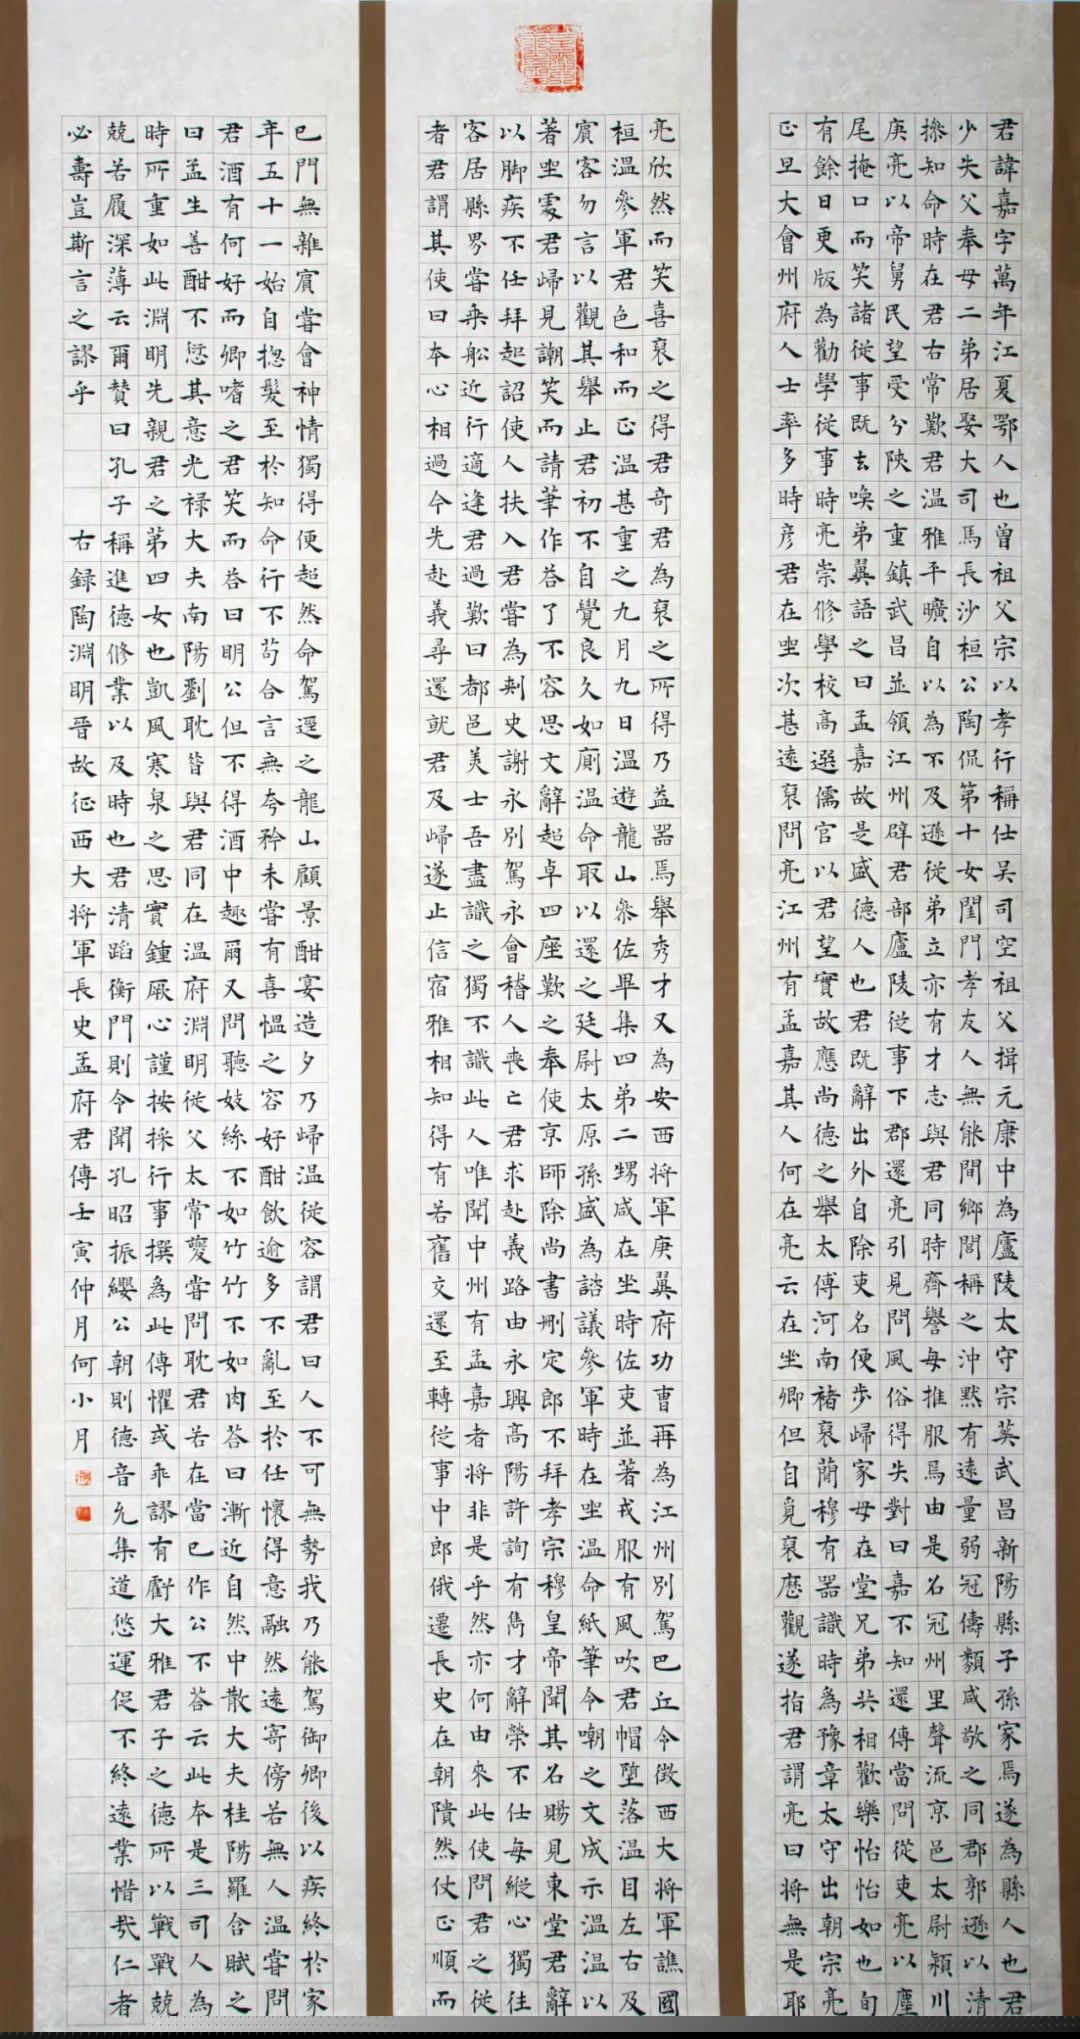 君諱嘉字萬年江夏鄂人也曾祖父宗以孝行稱仕吴司空祖父揖元康中為廬陵太守宗英武昌新陽縣子孫家焉遂為縣人也君
少失父奉母二弟居娶大司馬長沙桓公陶侃第十女閨門孝友人無能間鄉閭稱之沖默有遠量弱冠儔類咸敬之同郡郭遜以清
操知命時在君右常歎君温雅平曠自以為不及遜從弟立亦有才志與君同時齊譽每推服焉由是名冠州里聲流京邑太尉潁川
庾亮以帝舅民望受分陝之重鎮武昌並領江州辟君部廬陵從事下郡還亮引見問風俗得失對曰嘉不知還傳當問從吏亮以麈
尾掩口而笑諸從事既去喚弟翼語之曰孟嘉故是盛德人也君既辭出外自除吏名便步歸家母在堂兄弟共相歡樂怡怡如也旬
有餘日更版為勸學從事時亮崇修學校高選儒官以君望實故應尚德之舉太傅河南褚裒簡穆有器識時為豫章太守出朝宗亮
正旦大會州府人士率多時彦君在坐次甚遠裒問亮江州有孟嘉其人何在亮云在坐卿但自覓裒歷觀遂指君謂亮曰將無是耶
亮欣然而笑喜裒之得君奇君為裒之所得乃益器焉舉秀才又為安西将軍庾翼府功曹再為江州別駕巴丘令徵西大将軍譙國
桓温參軍君色和而正温甚重之九月九日温遊龍山參佐畢集四弟二甥咸在坐時佐吏並著戎服有風吹君帽墮落温目左右及
賓客勿言以觀其舉止君初不自覺良久如廁温命取以還之廷尉太原孫盛為諮議參軍時在坐温命紙筆令嘲之文成示温温以
著坐處君歸見謿笑而請筆作答了不容思文辭超卓四座歎之奉使京師除尚書刪定郎不拜孝宗穆皇帝聞其名賜見東堂君辭
以脚疾不任拜起詔使人扶入君嘗為刺史謝永別駕永會稽人喪亡君求赴義路由永興高陽許詢有雋才辭榮不仕每縱心獨往
客居縣界嘗乘船近行適逢君過歎曰都邑美士吾盡識之獨不識此人唯聞中州有孟嘉者将非是乎然亦何由來此使問君之從
者君謂其使曰本心相過今先赴義尋還就君及歸遂止信宿雅相知得有若舊交還至轉從事中郎俄遷長史在朝隤然仗正順而
已門無雜賓嘗會神情獨得便超然命駕逕之龍山顧景酣宴造夕乃歸温從容謂君曰人不可無勢我乃能駕御卿後以疾終於家
年五十一始自揔髮至於知命行不苟合言無夸矜未嘗有喜愠之容好酣飲逾多不亂至於任懷得意融然遠寄傍若無人温嘗問
君酒有何好而卿嗜之君笑而答曰明公但不得酒中趣爾又問聽妓絲不如竹竹不如肉答曰漸近自然中散大夫桂陽羅含賦之
曰孟生善酣不愆其意光禄大夫南陽劉耽昔與君同在温府淵明從父太常夔嘗問耽君若在當已作公不答云此本是三司人為
時所重如此淵明先親君之第四女也凱風寒泉之思實鍾厥心謹按採行事撰為此傳懼或乖謬有虧大雅君子之德所以戰戰兢
兢若履深薄云爾贊曰孔子稱進德修業以及時也君清蹈衡門則令聞孔昭振纓公朝則德音允集道悠運促不終遠業惜哉仁者
必壽豈斯言之謬乎
右録陶淵明晉故征西大将軍長史孟府君傳壬寅仲月何小月